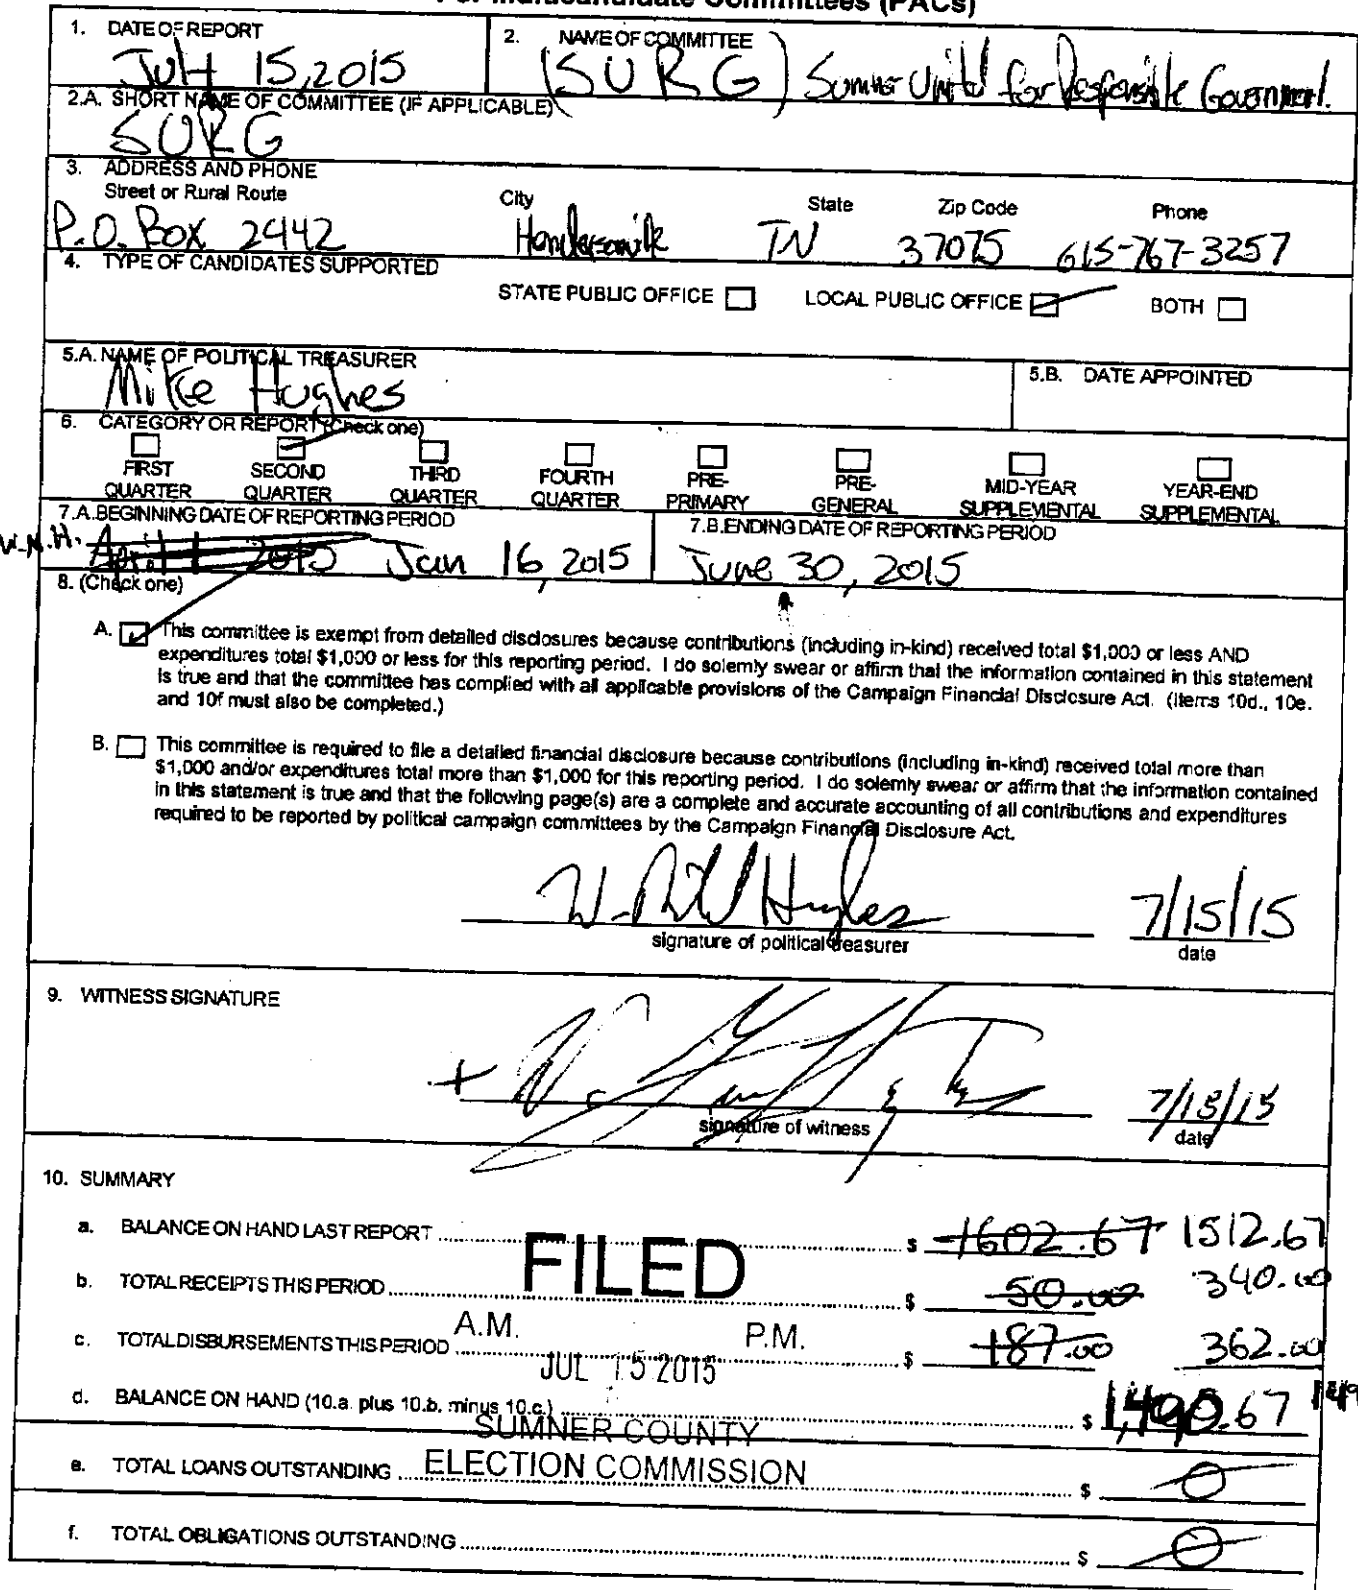 For Multicandidate Committees (PACs)
1. DATE OF REPORT
July 15, 2015
2. NAME OF COMMITTEE
(SURG) Sumner United for Responsible Government.
2.A. SHORT NAME OF COMMITTEE (IF APPLICABLE)
SURG
3. ADDRESS AND PHONE
Street or Rural Route City State Zip Code Phone
P.O. Box 2442 Hendersonville TN 37075 615-767-3257
4. TYPE OF CANDIDATES SUPPORTED
STATE PUBLIC OFFICE LOCAL PUBLIC OFFICE BOTH
5.A. NAME OF POLITICAL TREASURER
Mike Hughes
5.B. DATE APPOINTED
6. CATEGORY OR REPORT (Check one)
FIRST QUARTER
SECOND QUARTER
THIRD QUARTER
FOURTH QUARTER
PRE-PRIMARY
PRE-GENERAL
MID-YEAR SUPPLEMENTAL
YEAR-END SUPPLEMENTAL
7.A. BEGINNING DATE OF REPORTING PERIOD
W.M.H. April 1 2015 Jan 16, 2015
7.B. ENDING DATE OF REPORTING PERIOD
June 30, 2015
8. (Check one)
A. This committee is exempt from detailed disclosures because contributions (including in-kind) received total $1,000 or less AND
expenditures total $1,000 or less for this reporting period. I do solemly swear or affirm that the information contained in this statement
is true and that the committee has complied with all applicable provisions of the Campaign Financial Disclosure Act. (Items 10d., 10e.
and 10f must also be completed.)
B. This committee is required to file a detailed financial disclosure because contributions (including in-kind) received total more than
$1,000 and/or expenditures total more than $1,000 for this reporting period. I do solemly swear or affirm that the information contained
in this statement is true and that the following page(s) are a complete and accurate accounting of all contributions and expenditures
required to be reported by political campaign committees by the Campaign Financial Disclosure Act.
Hughes 7/15/15
signature of political treasurer date
9. WITNESS SIGNATURE
7/15/15
signature of witness date
10. SUMMARY
a. BALANCE ON HAND LAST REPORT $ 1602.67 1512.67
FILED
b. TOTAL RECEIPTS THIS PERIOD $ 50.00 340.00
A.M. P.M.
c. TOTAL DISBURSEMENTS THIS PERIOD $ 187.00 362.00
JUL 15 2015
d. BALANCE ON HAND (10.a. plus 10.b. minus 10.c.) $ 1,490.67
SUMNER COUNTY
ELECTION COMMISSION
e. TOTAL LOANS OUTSTANDING $ 0
f. TOTAL OBLIGATIONS OUTSTANDING $ 0